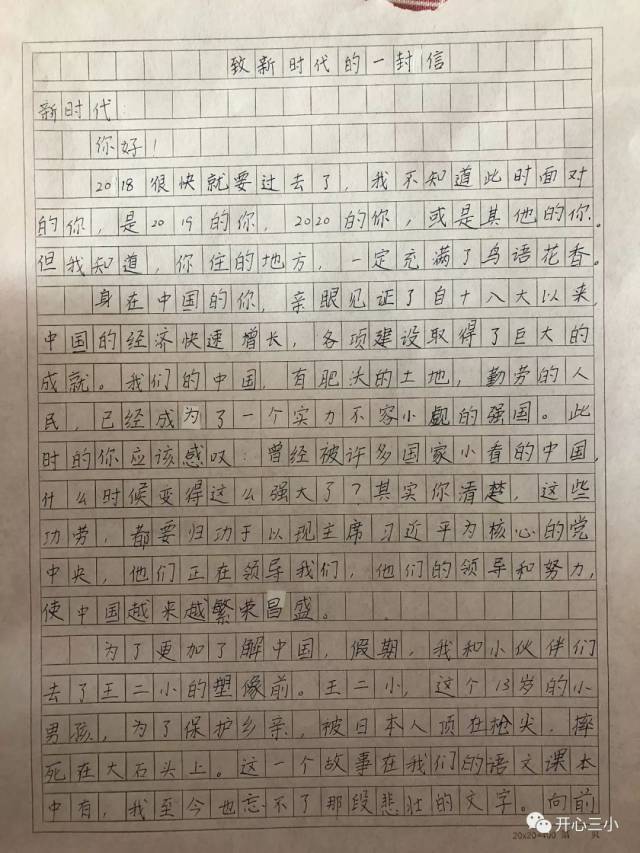 致新时代的一封信
新时代:
你好!
2018很快就要过去了,我不知道此时面对
的你,是2019的你,2020的你,或是其他的你.
但我知道,你住的地方,一定充满了鸟语花香。
身在中国的你,亲眼见证了自十八大以来,
中国的经济快速增长,各项建设取得了巨大的
成就。我们的中国,有肥沃的土地,勤劳的人
民,已经成为了一个实力不容小觑的强国。此
时的你应该感叹:曾经被许多国家小看的中国,
什么时候变得这么强大了?其实你清楚,这些
功劳,都要归功于以现主席习近平为核心的党
中央,他们正在领导我们,他们的领导和努力,
使中国越来越繁荣昌盛。
为了更加了解中国,假期,我和小伙伴们
去了王二小的塑像前。王二小,这个13岁的小
男孩,为了保护乡亲,被日本人顶在枪尖,摔
死在大石头上。这一个故事在我们的语文课本
中有,我至今也忘不了那段悲壮的文字。向前
开心三小
20×20=400 第 页